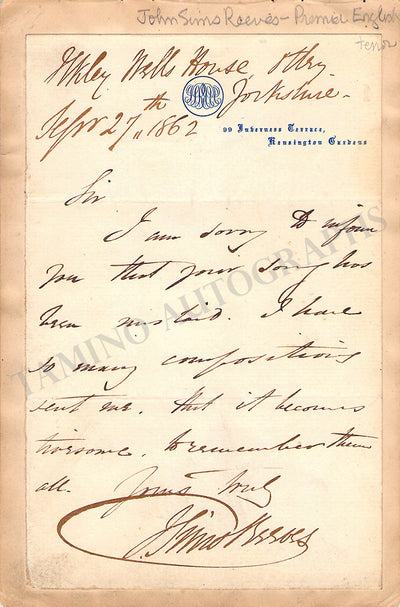 John Sims Reeves - Premier English
tenor
Ilkley Wells House, Otley
Yorkshire.
Sept 27th 1862
99 Inverness Terrace,
Kensington Gardens
Sir
I am sorry to inform
you that your song has
been mislaid. I have
so many compositions
sent me, that it becomes
tiresome to remember them
all. Yours truly
J Sims Reeves
TAMINO AUTOGRAPHS